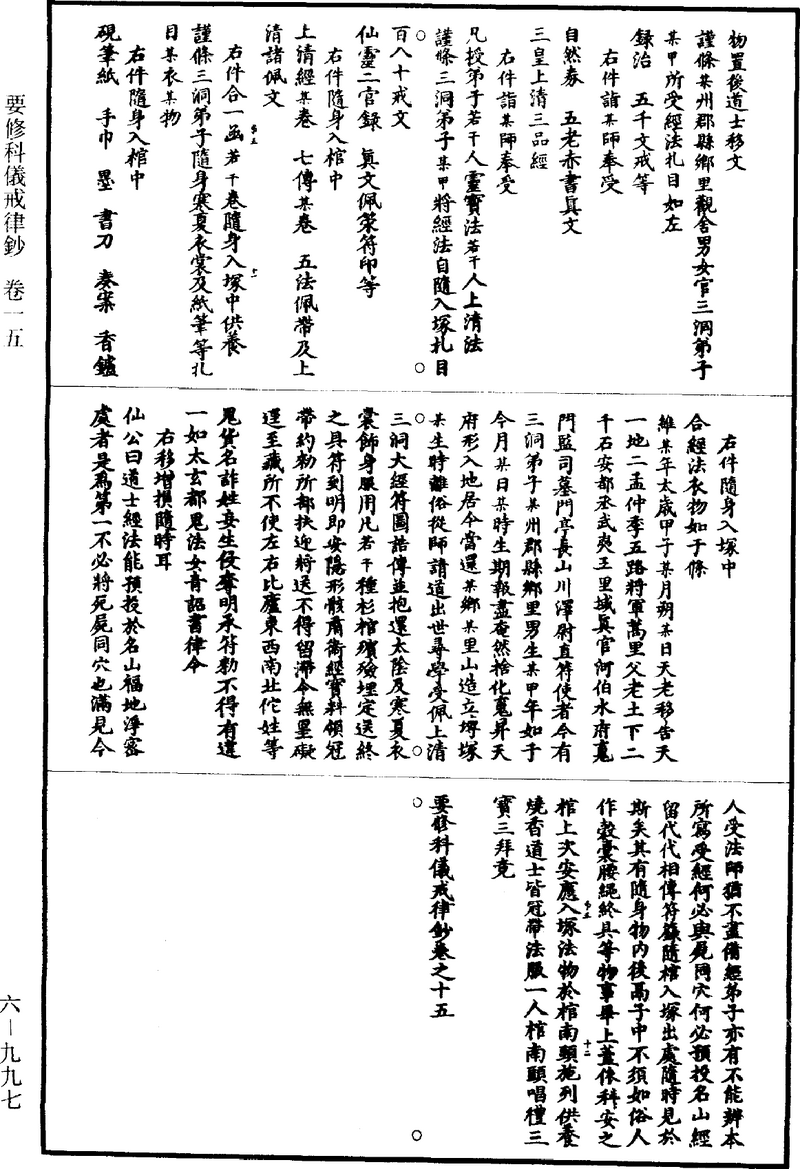 物置後道士移文
謹條某州郡縣鄉里觀舍男女官三洞弟子
某甲所受經法札目如左
録治　五千文戒等
右件詣某師奉受
自然券　五老赤書真文
三皇上清三品經
右件詣某師奉受
凡授弟子若干人靈寶法若干人上清法
謹條三洞弟子某甲將經法自隨入塚札目
百八十戒文
仙靈二官録　真文佩策符印等
右件隨身入棺中
上清經某卷　七傳某卷　五法佩帶及上
清諸佩文
右件合一函若干卷隨身入塚中供養
謹條三洞弟子隨身寒夏衣裳及紙筆等札
目某衣某物
右件隨身入棺中
硯筆紙　手巾　墨　書刀　奏案　香鑪
右件隨身入塚中
合經法衣物如于條
維某年太歲甲子某月朔某日天老移告天
一地二孟仲季五路將軍萬里父老土下二
千石安都丞武夷王里域真官河伯水府魂
門監司墓門亭長山川澤尉直符使者今有
三洞弟子某州郡縣鄉里男生某甲年如于
今月某日某時生期報盡奄然捨化魂昇天
府形入地居今當還某鄉某里山造立塼塚
某生時離俗從師請道出世尋學受佩上清
三洞大經符圖誥傳並抱還太陰及寒夏衣
裳飾身服用凡若干種杉棺殯殮埋定送終
之具符到明即安隱形骸肅衛經寶料領冠
帶約勑所部扶迎將送不得留滯令無罣礙
逕至藏所不使左右比廬東西南北佗姓等
鬼貨名詐姓妄生侵奪明承符勑不得有違
一如太玄都鬼法女青詔書律令
右移增損隨時耳
仙公曰道士經法能預投於名山福地淨密
處者是爲第一不必將死屍同穴也滿見今
人受法師猶不盡備經弟子亦有不能辨本
所寫受經何必與屍同穴何必預投名山經
留代代相傳符籙隨棺入塚出處隨時見於
斯矣其有隨身物内後鬲子中不須如俗人
作穀囊腰繩終具等物事畢上蓋依科安之
棺上次安應入塚法物於棺南頭施列供養
燒香道士皆冠帶法服一人棺南頭唱禮三
寶三拜竟
要修科儀戒律鈔卷之十五
要修科儀戒律鈔　卷一五
六－九九七